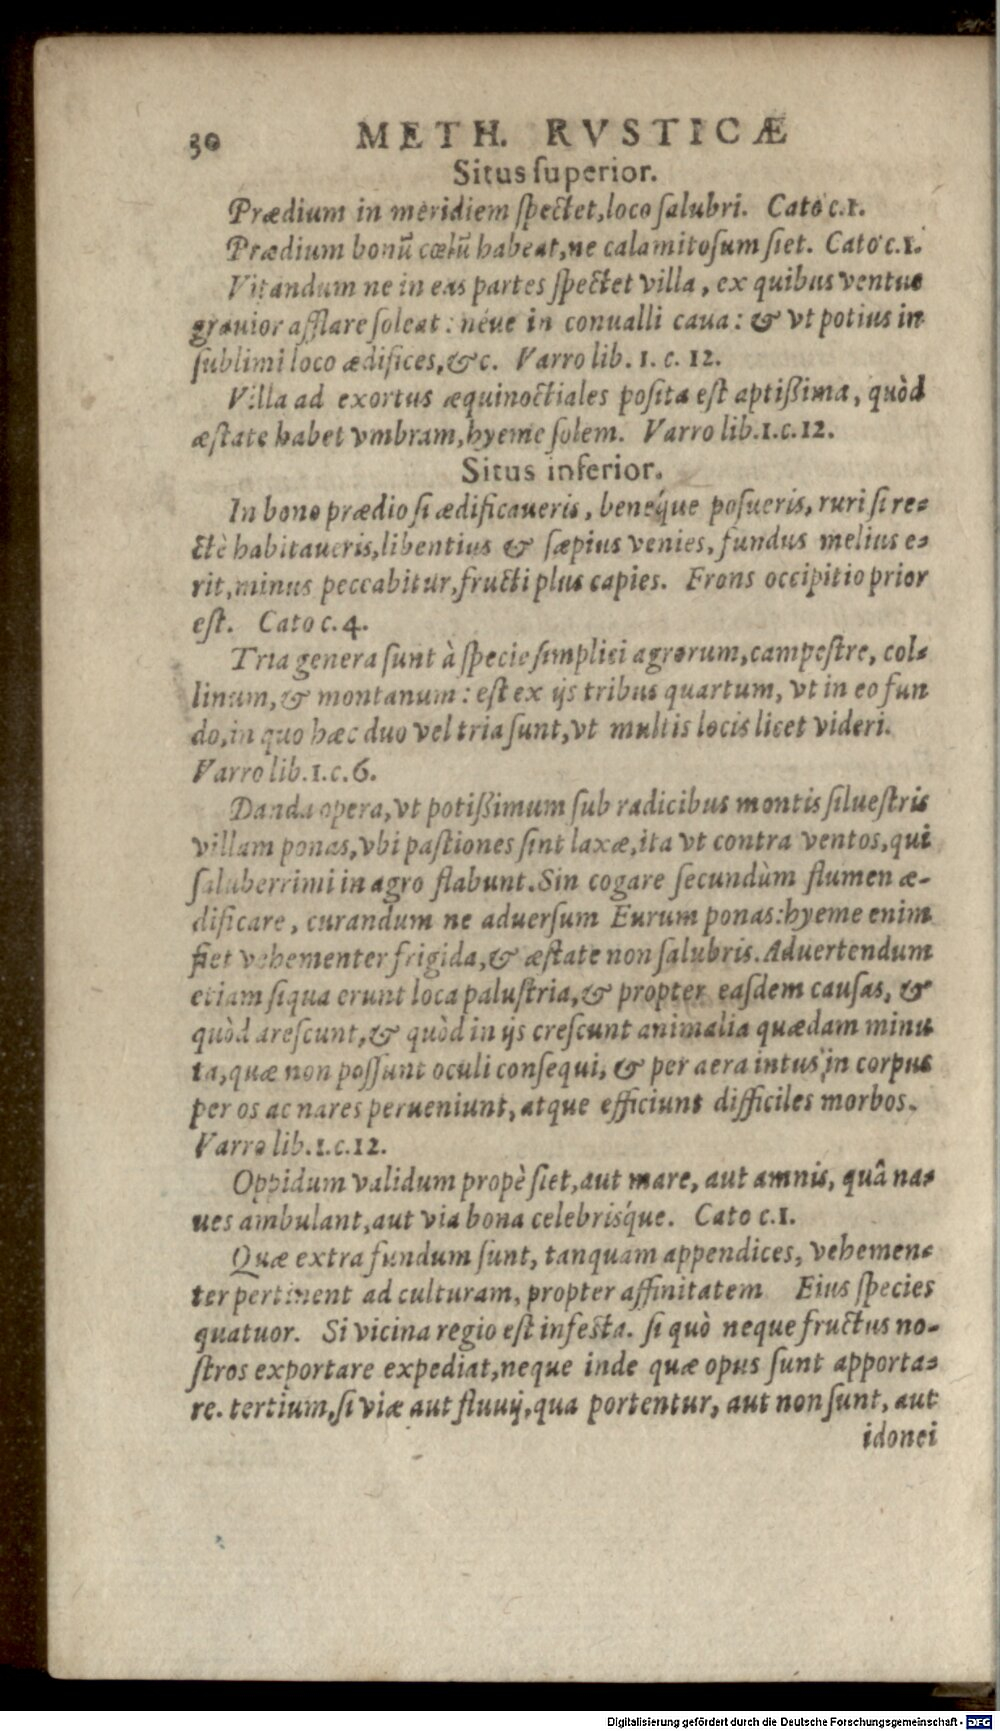 30 METH. RVSTICÆ
Situs ſuperior.
Prædium in meridiem ſpectet, loco ſalubri. Cato c.1.
Prædium bonū cœlū habeat, ne calamitoſum ſiet. Cato c.1.
Vitandum ne in eas partes ſpectet villa, ex quibus ventus
grauior afflare ſoleat: néue in conualli caua: & vt potius in
ſublimi loco ædifices, &c. Varro lib. 1. c. 12.
Villa ad exortus æquinoctiales poſita eſt aptißima, quòd
æſtate habet vmbram, hyeme ſolem. Varro lib.1.c.12.
Situs inferior.
In bono prædio ſi ædificaueris, benéque poſueris, ruri ſi re-
ctè habitaueris, libentius & ſæpius venies, fundus melius e-
rit, minus peccabitur, fructi plus capies. Frons occipitio prior
eſt. Cato c. 4.
Tria genera ſunt à ſpecie ſimplici agrorum, campeſtre, col-
linum, & montanum: eſt ex ijs tribus quartum, vt in eo fun
do, in quo hæc duo vel tria ſunt, vt multis locis licet videri.
Varro lib.1.c.6.
Danda opera, vt potißimum ſub radicibus montis ſilueſtris
villam ponas, vbi paſtiones ſint laxæ, ita vt contra ventos, qui
ſaluberrimi in agro flabunt. Sin cogare ſecundùm flumen æ-
dificare, curandum ne aduerſum Eurum ponas: hyeme enim
fiet vehementer frigida, & æſtate non ſalubris. Aduertendum
etiam ſiqua erunt loca paluſtria, & propter eaſdem cauſas, &
quòd areſcunt, & quòd in ijs creſcunt animalia quædam minu
ta, quæ non poſſunt oculi conſequi, & per aera intus in corpus
per os ac nares perueniunt, atque efficiunt difficiles morbos.
Varro lib.1.c.12.
Oppidum validum propè ſiet, aut mare, aut amnis, quâ na-
ues ambulant, aut via bona celebriśque. Cato c.1.
Quæ extra fundum ſunt, tanquam appendices, vehemen-
ter pertinent ad culturam, propter affinitatem Eius ſpecies
quatuor. Si vicina regio eſt infeſta. ſi quò neque fructus no-
ſtros exportare expediat, neque inde quæ opus ſunt apporta-
re. tertium, ſi viæ aut fluuij, qua portentur, aut non ſunt, aut
idonei
Digitalisierung gefördert durch die Deutsche Forschungsgemeinschaft - DFG